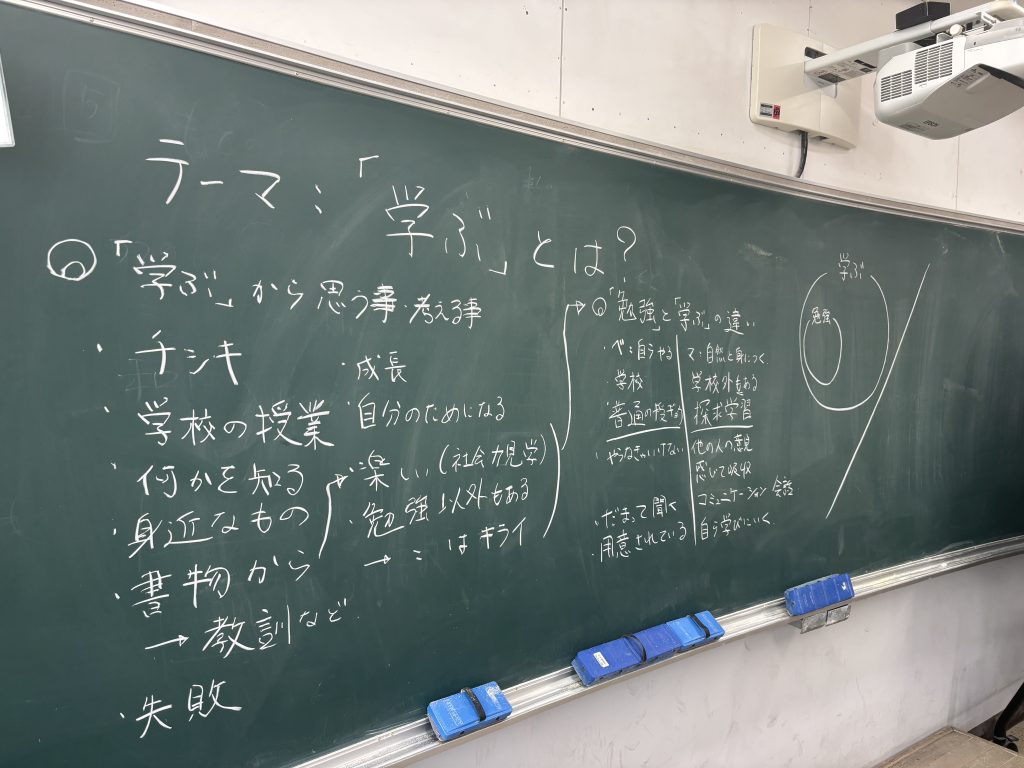 テーマ:「学ぶ」とは?
◎「学ぶ」から思う事・考える事
・チシキ
・学校の授業
・何かを知る
・身近なもの
・書物から
→教訓など
・失敗
・成長
・自分のためになる
・楽しい(社会力見学)
・勉強以外もある
→ はキライ
◎「勉強」と「学ぶ」の違い
べ:自らやる
・学校
・普通の授業
・やらなきゃいけない
・だまって聞く
・用意されている
マ:自然と身につく
学校外もある
探求学習
他の人の意見
感じて吸収
コミュニケーション 会話
自ら学びにいく
学ぶ
勉強